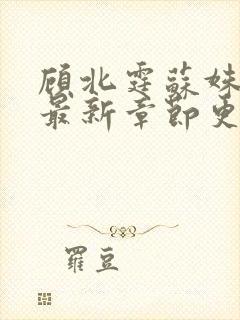 顾北霆蘇妹
最新章節更
羅豆